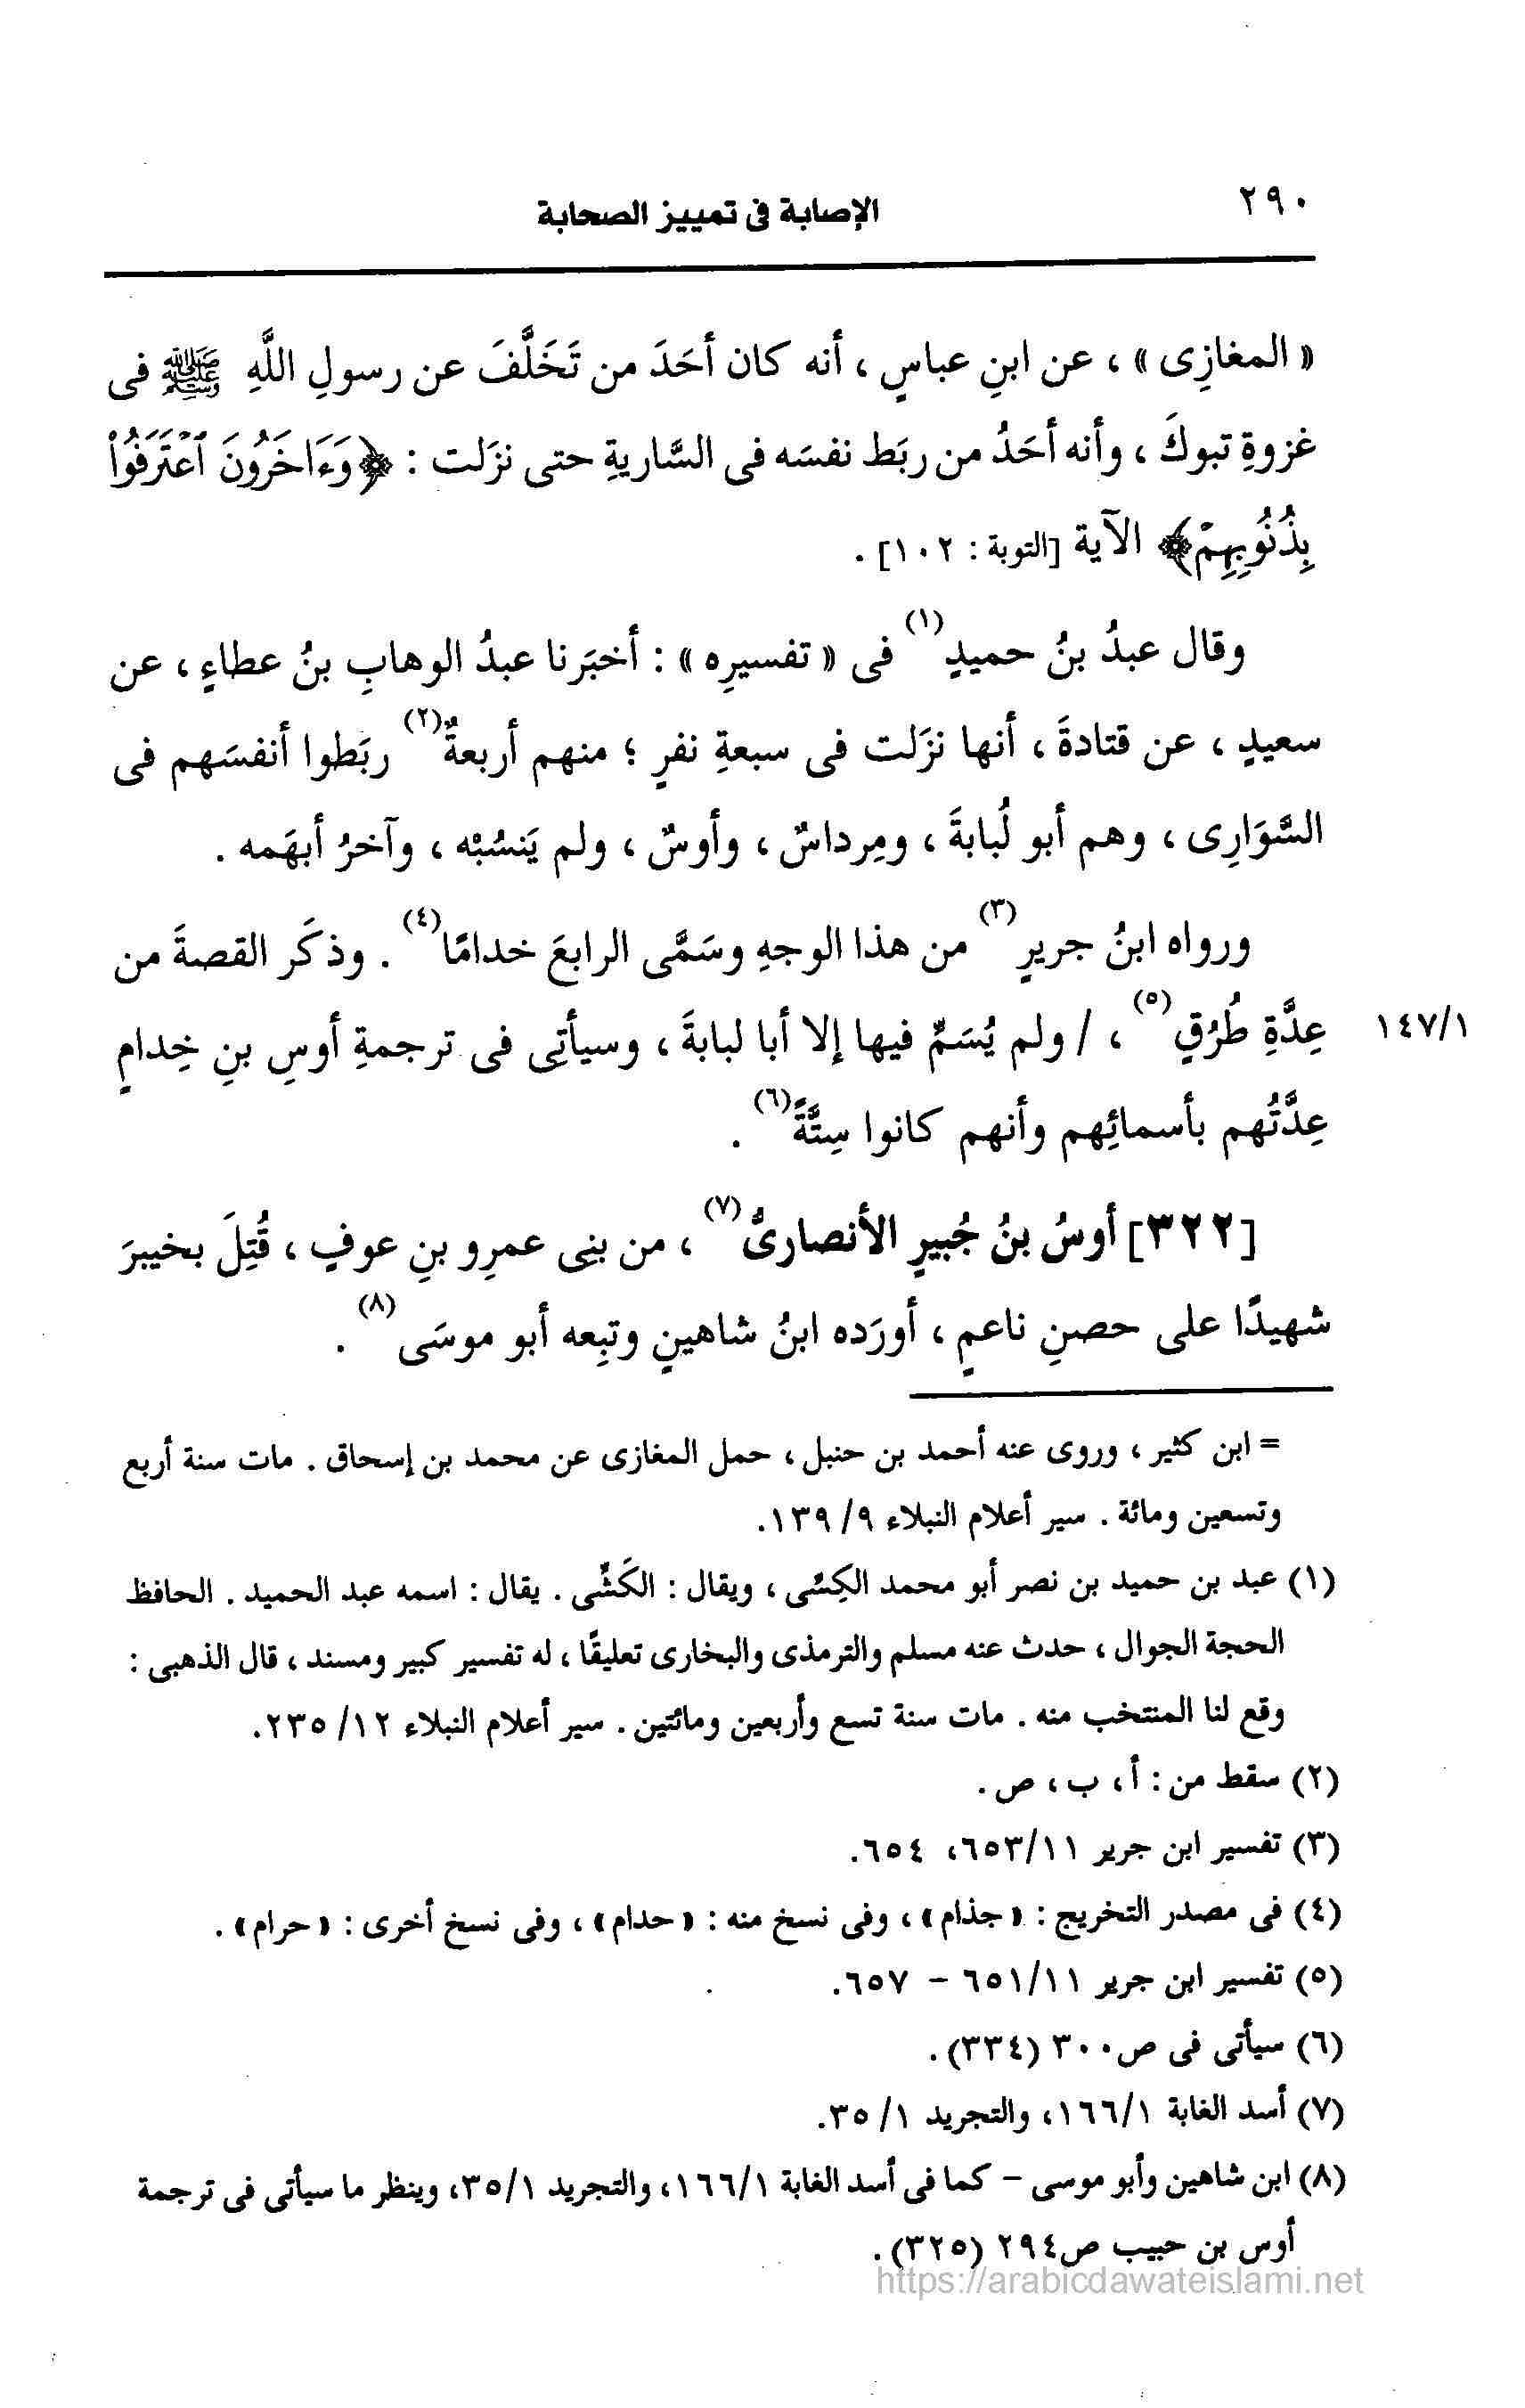 ٢٩٠
الإصابة فى تمييز الصحابة
« المغازِى » ، عن ابنِ عباسٍ ، أنه كان أحَدَ من تَخَلَّفَ عن رسولِ اللَّهِ ﷺ فى
غزوةِ تبوكَ ، وأنه أحَدُ من ربَط نفسَه فى السَّاريةِ حتى نزَلت : ﴿وَءَاخَرُونَ ٱعْتَرَفُوا۟
بِذُنُوبِهِمْ﴾ الآية [التوبة : ١٠٢] .
وقال عبدُ بنُ حميدٍ(١) فى « تفسيرِه » : أخبَرنا عبدُ الوهابِ بنُ عطاءٍ ، عن
سعيدٍ ، عن قتادةَ ، أنها نزَلت فى سبعةِ نفرٍ ؛ منهم أربعةٌ(٢) ربَطوا أنفسَهم فى
السَّوَارِى ، وهم أبو لُبابةَ ، ومِرداسٌ ، وأوسٌ ، ولم يَنسُبْه ، وآخرُ أبهَمه .
ورواه ابنُ جريرٍ(٣) من هذا الوجهِ وسَمَّى الرابعَ خدامًا(٤) . وذكَر القصةَ من
عِدَّةِ طُرُقٍ(٥) ، / ولم يُسَمِّ فيها إلا أبا لبابةَ ، وسيأتِى فى ترجمةِ أوسِ بنِ خِدامٍ
١٤٧/١
عِدَّتُهم بأسمائِهم وأنهم كانوا سِتَّةً(٦) .
[٣٢٢] أوسُ بنُ جُبيرٍ الأنصارىُّ(٧) ، من بنِى عمرِو بنِ عوفٍ ، قُتِلَ بخيبرَ
شهيدًا على حصنِ ناعمٍ ، أورَده ابنُ شاهينٍ وتبِعه أبو موسَى(٨) .
= ابن كثير ، وروى عنه أحمد بن حنبل ، حمل المغازى عن محمد بن إسحاق . مات سنة أربع
وتسعين ومائة . سير أعلام النبلاء ٩/ ١٣٩.
(١) عبد بن حميد بن نصر أبو محمد الكِسِّى ، ويقال : الكَشِّى . يقال : اسمه عبد الحميد . الحافظ
الحجة الجوال ، حدث عنه مسلم والترمذى والبخارى تعليقًا ، له تفسير كبير ومسند ، قال الذهبى :
وقع لنا المنتخب منه . مات سنة تسع وأربعين ومائتين . سير أعلام النبلاء ١٢/ ٢٣٥.
(٢) سقط من : أ ، ب ، ص .
(٣) تفسير ابن جرير ١١/٦٥٣، ٦٥٤.
(٤) فى مصدر التخريج : « جذام » ، وفى نسخ منه : « حدام » ، وفى نسخ أخرى : « حرام » .
(٥) تفسير ابن جرير ١١/٦٥١ - ٦٥٧.
(٦) سيأتى فى ص٣٠٠ (٣٣٤) .
(٧) أسد الغابة ١/١٦٦، والتجريد ١/ ٣٥.
(٨) ابن شاهين وأبو موسى - كما فى أسد الغابة ١/١٦٦، والتجريد ١/٣٥، وينظر ما سيأتى فى ترجمة
أوس بن حبيب ص٢٩٤ (٣٢٥) .
https://arabicdawateislami.net